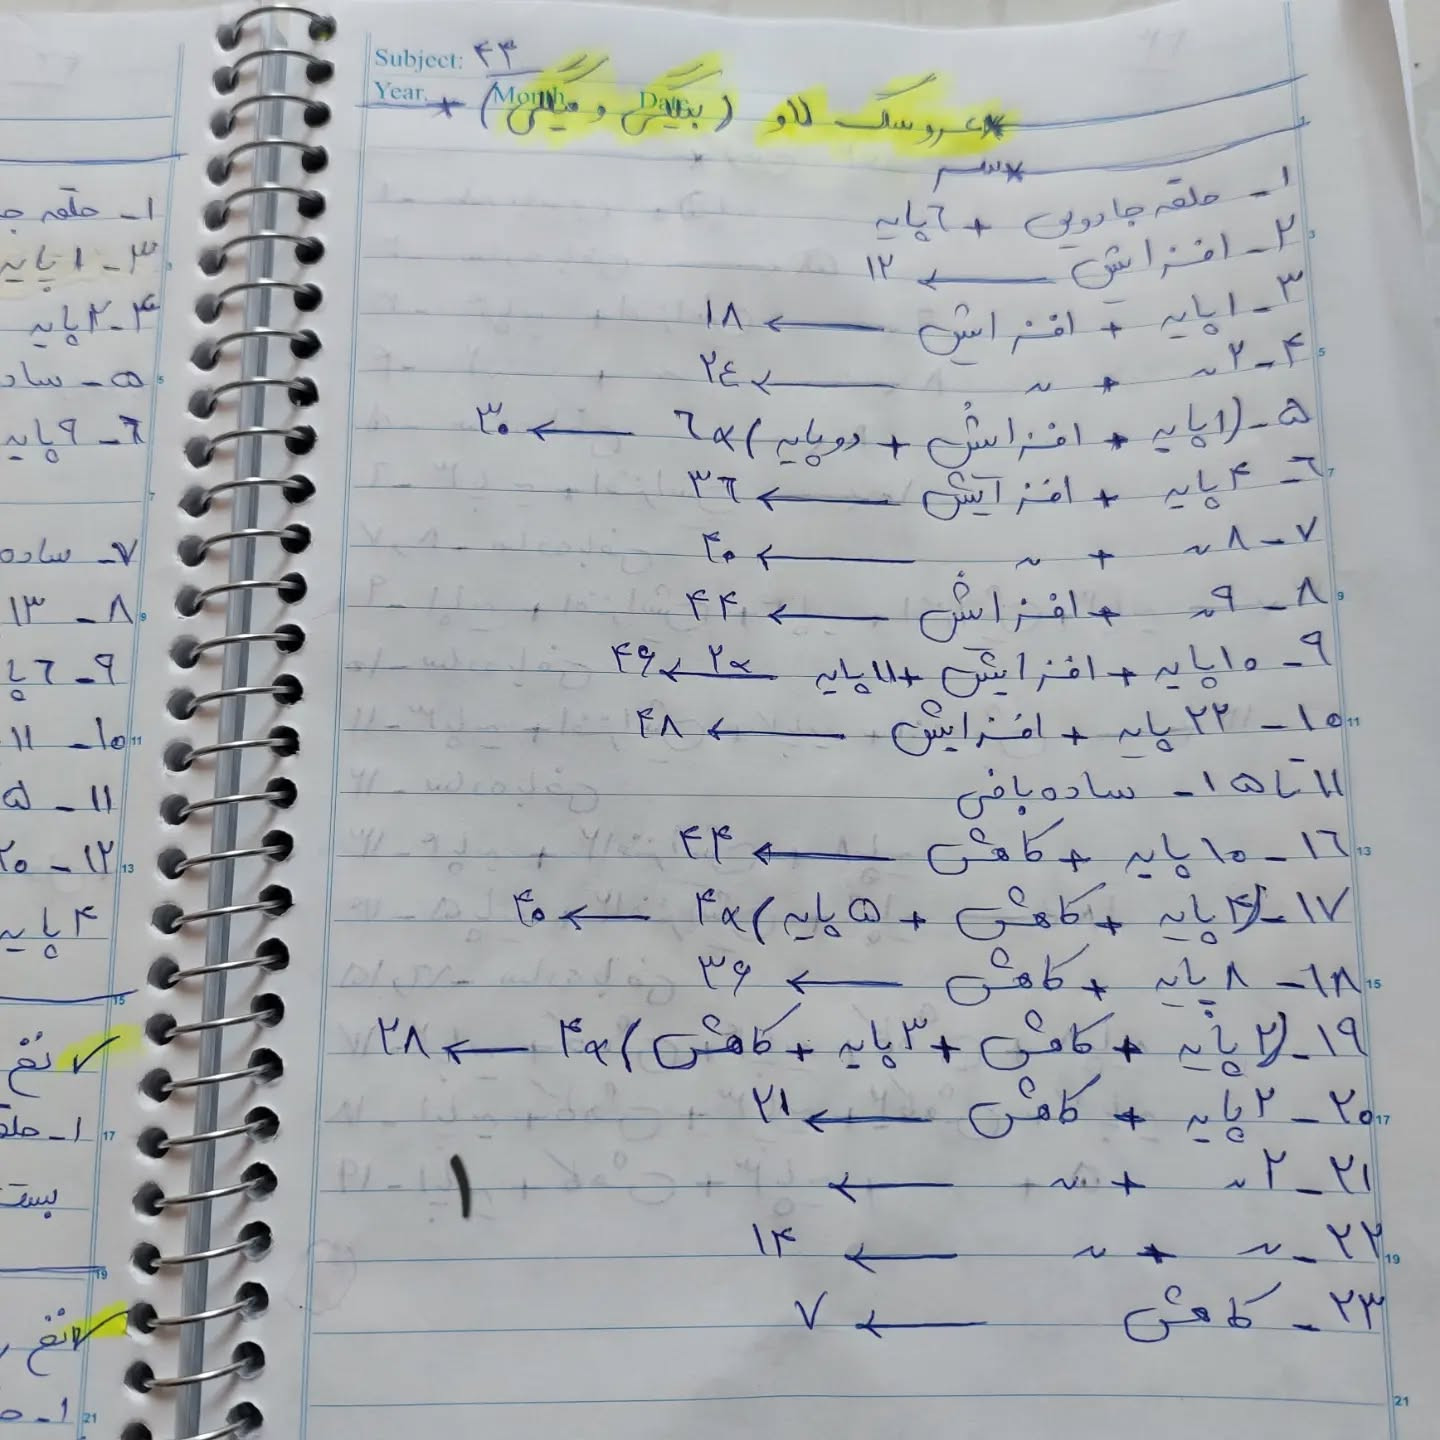 Subject: ۴۴
Year. Month Date
*عروسک لاو (بیگلی و میگلی)*
*سر
۱- حلقه جادویی + ۶پایه
۲- افزایش ← ۱۲
۳- ۱پایه + افزایش ← ۱۸
۴- ۲ ~ + ~ ← ۲٤
۵- (۱پایه + افزایش + دوپایه)×۶ ← ۳۰
۶- ۴پایه + افزایش ← ۳۶
۷- ۸ ~ + ~ ← ۴۰
۸- ۹ ~ + افزایش ← ۴۴
۹- ۱۰پایه + افزایش + ۱۱پایه ×۲ ← ۴۶
۱۰- ۲۲ پایه + افزایش ← ۴۸
۱۱ تا ۱۵- ساده بافی
۱۶- ۱۰پایه + کاهش ← ۴۴
۱۷- (۴پایه + کاهش + ۵پایه)×۴ ← ۴۰
۱۸- ۸پایه + کاهش ← ۳۶
۱۹- (۲پایه + کاهش + ۳پایه + کاهش)×۴ ← ۲۸
۲۰- ۲پایه + کاهش ← ۲۱
۲۱- ۲ ~ + ~ ←
۲۲- ~ + ~ ← ۱۴
۲۳- کاهش ← ۷
۱- حلقه
۳- ۱پایه
۴- ۲پایه
۵- ساده
۶- ۹پایه
۷- ساده
۸- ۱۳
۹- ۶
۱۰- ۱۱
۱۱- ۵
۱۲- ۲۰
۴پایه
نخ
۱-
نخ
۱-